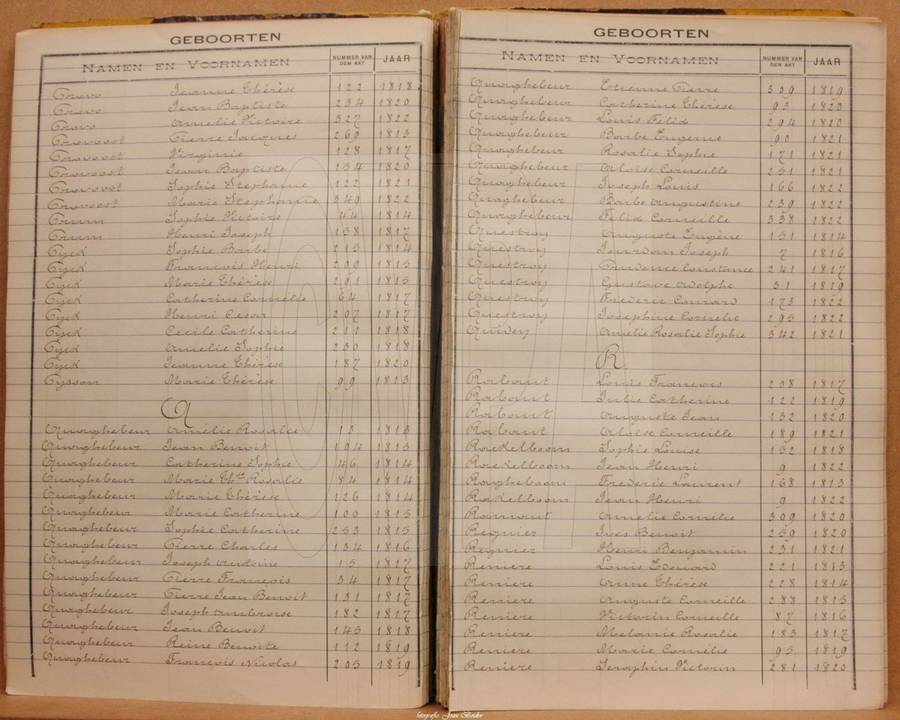 GEBOORTEN
NAMEN EN VOORNAMEN NUMMER VAN DEN AKT JAAR
Provo Jeanne Thérèse 122 1818
Provo Jean Baptiste 234 1820
Provo Amelie Victoire 327 1822
Provoost Pierre Jacques 269 1813
Provoost Virginie 128 1817
Provoost Jean Baptiste 134 1820
Provoost Sophie Stephanie 122 1821
Provoost Marie Stephanie 349 1822
Prum Sophie Victoire 44 1814
Prum Henri Joseph 138 1817
Pyck Sophie Barbe 213 1814
Pyck François Henri 200 1815
Pyck Marie Thérèse 291 1815
Pyck Catherine Cornélie 64 1817
Pyck Henri Cesar 207 1817
Pyck Cecile Catherine 212 1818
Pyck Amelie Sophie 230 1818
Pyck Jeanne Thérèse 187 1820
Pysson Marie Thérèse 99 1813
Q
Quaghebeur Amélie Rosalie 13 1813
Quaghebeur Jean Benoit 194 1813
Quaghebeur Catherine Sophie 46 1814
Quaghebeur Marie Th. Rosalie 84 1814
Quaghebeur Marie Thérèse 126 1814
Quaghebeur Marie Catherine 100 1815
Quaghebeur Sophie Catherine 253 1815
Quaghebeur Pierre Charles 134 1816
Quaghebeur Joseph Antoine 15 1817
Quaghebeur Pierre François 34 1817
Quaghebeur Pierre Jean Benoit 131 1817
Quaghebeur Joseph Ambroise 182 1817
Quaghebeur Jean Benoit 143 1818
Quaghebeur Reine Benoite 112 1819
Quaghebeur François Nicolas 205 1819
GEBOORTEN
NAMEN EN VOORNAMEN NUMMER VAN DEN AKT JAAR
Quaghebeur Etienne Pierre 309 1819
Quaghebeur Catherine Thérèse 93 1820
Quaghebeur Louis Felix 294 1820
Quaghebeur Barbe Eugenie 90 1821
Quaghebeur Rosalie Sophie 171 1821
Quaghebeur Aloise Corneille 251 1821
Quaghebeur Joseph Louis 166 1822
Quaghebeur Barbe Augustine 239 1822
Quaghebeur Felix Corneille 338 1822
Questroy Auguste Eugène 131 1814
Questroy Jourdon Joseph 7 1816
Questroy Prudence Constance 241 1817
Questroy Gustave Adolphe 31 1819
Questroy Frederic Conrard 173 1822
Questroy Josephine Cornelie 295 1822
Amelie Rosalie Sophie 342 1821
R
Rabaut Louis François 208 1817
Rabaut Julie Catherine 122 1819
Rabaut Auguste Jean 132 1820
Rabaut Aloise Corneille 189 1821
Raekelboom Sophie Louise 152 1818
Raekelboom Jean Henri 9 1822
Frederic Laurent 168 1813
Rakelboom Jean Henri 9 1822
Ramaut Amelie Cornélie 309 1820
Regnier Ives Benoit 259 1820
Regnier Henri Benjamin 231 1821
Reniere Louis Edouard 221 1813
Reniere Anne Thérèse 228 1814
Reniere Auguste Corneille 288 1815
Reniere Victorin Corneille 87 1816
Reniere Melanie Rosalie 183 1817
Reniere Marie Cornelie 95 1819
Reniere Seraphin Victorin 281 1820